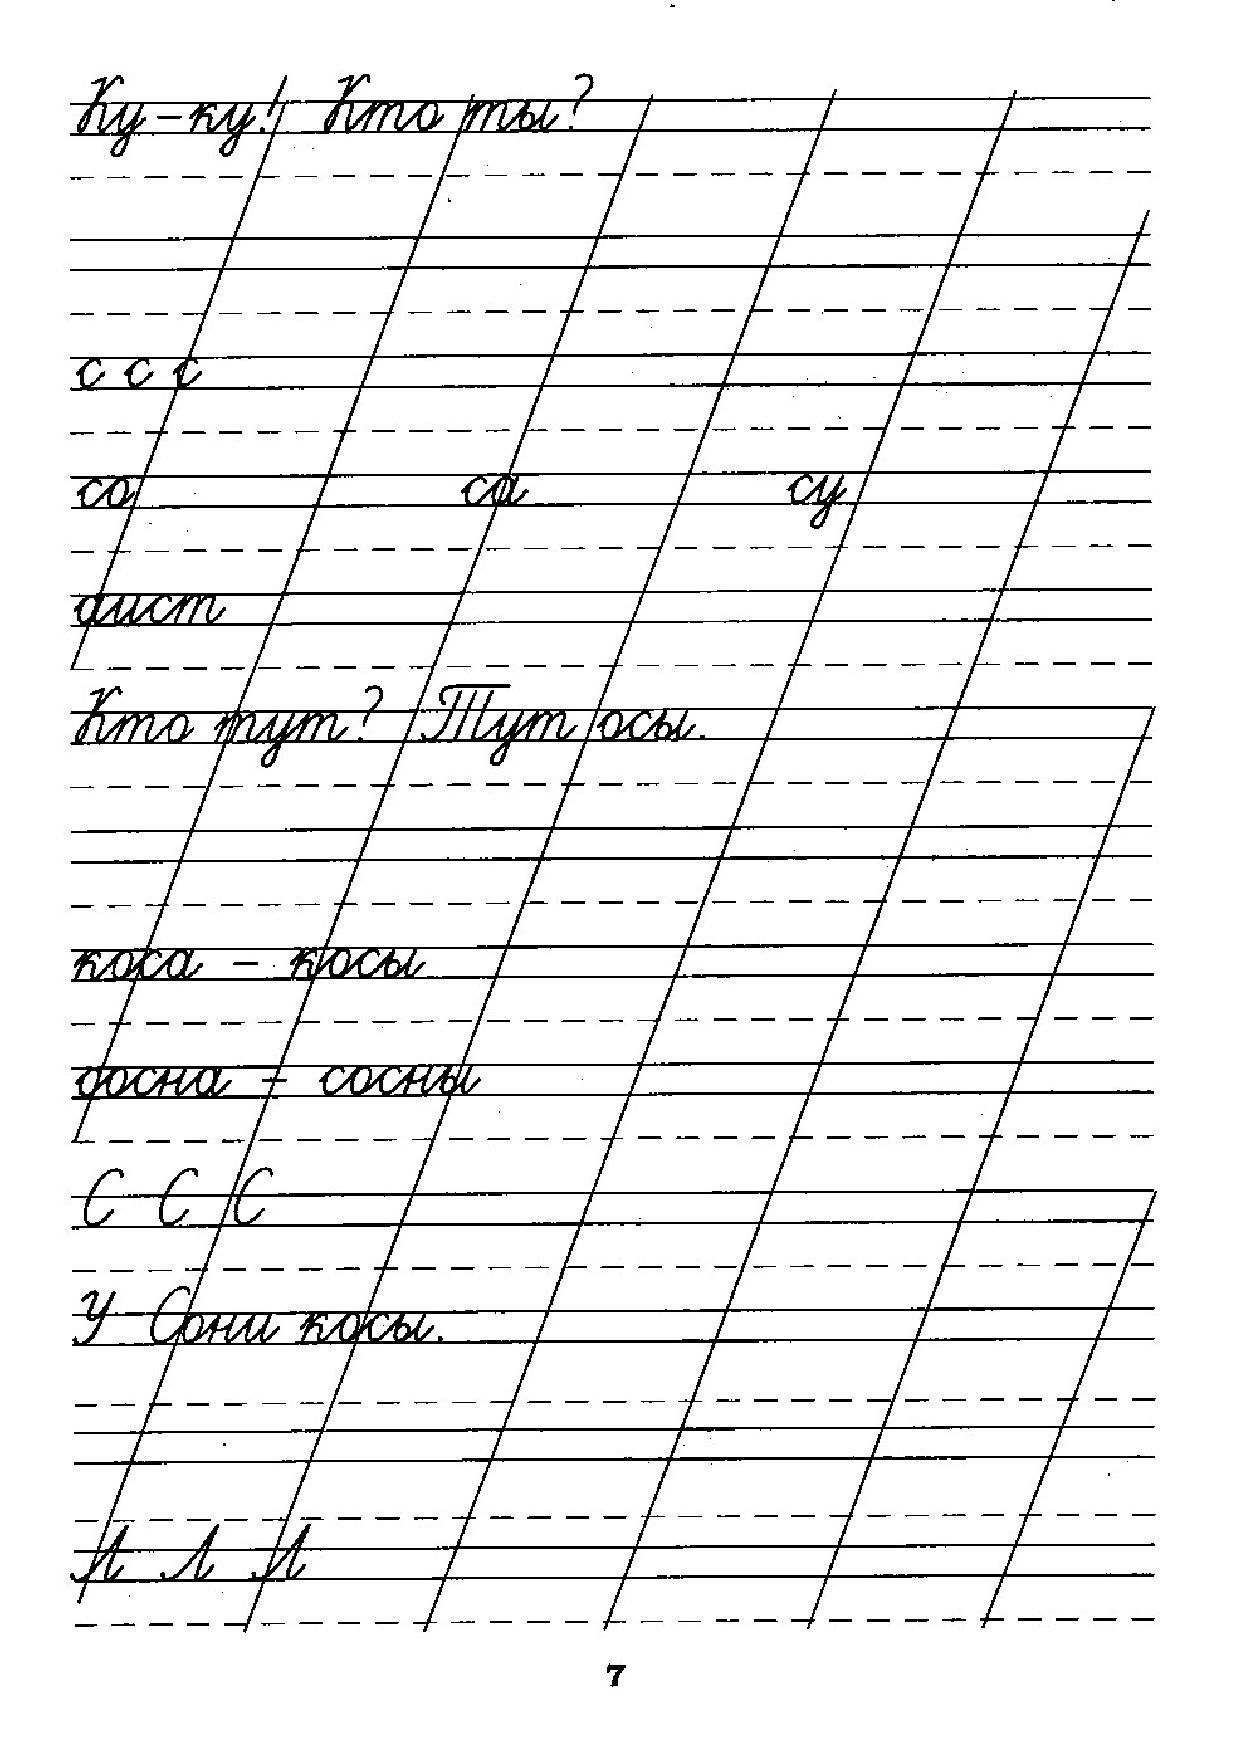 Ку-ку! Кто ты?
с с с
со са су
аист
Кто тут? Тут осы.
коса – косы
сосна – сосны
С С С
У Сони косы.
Л Л Л
7